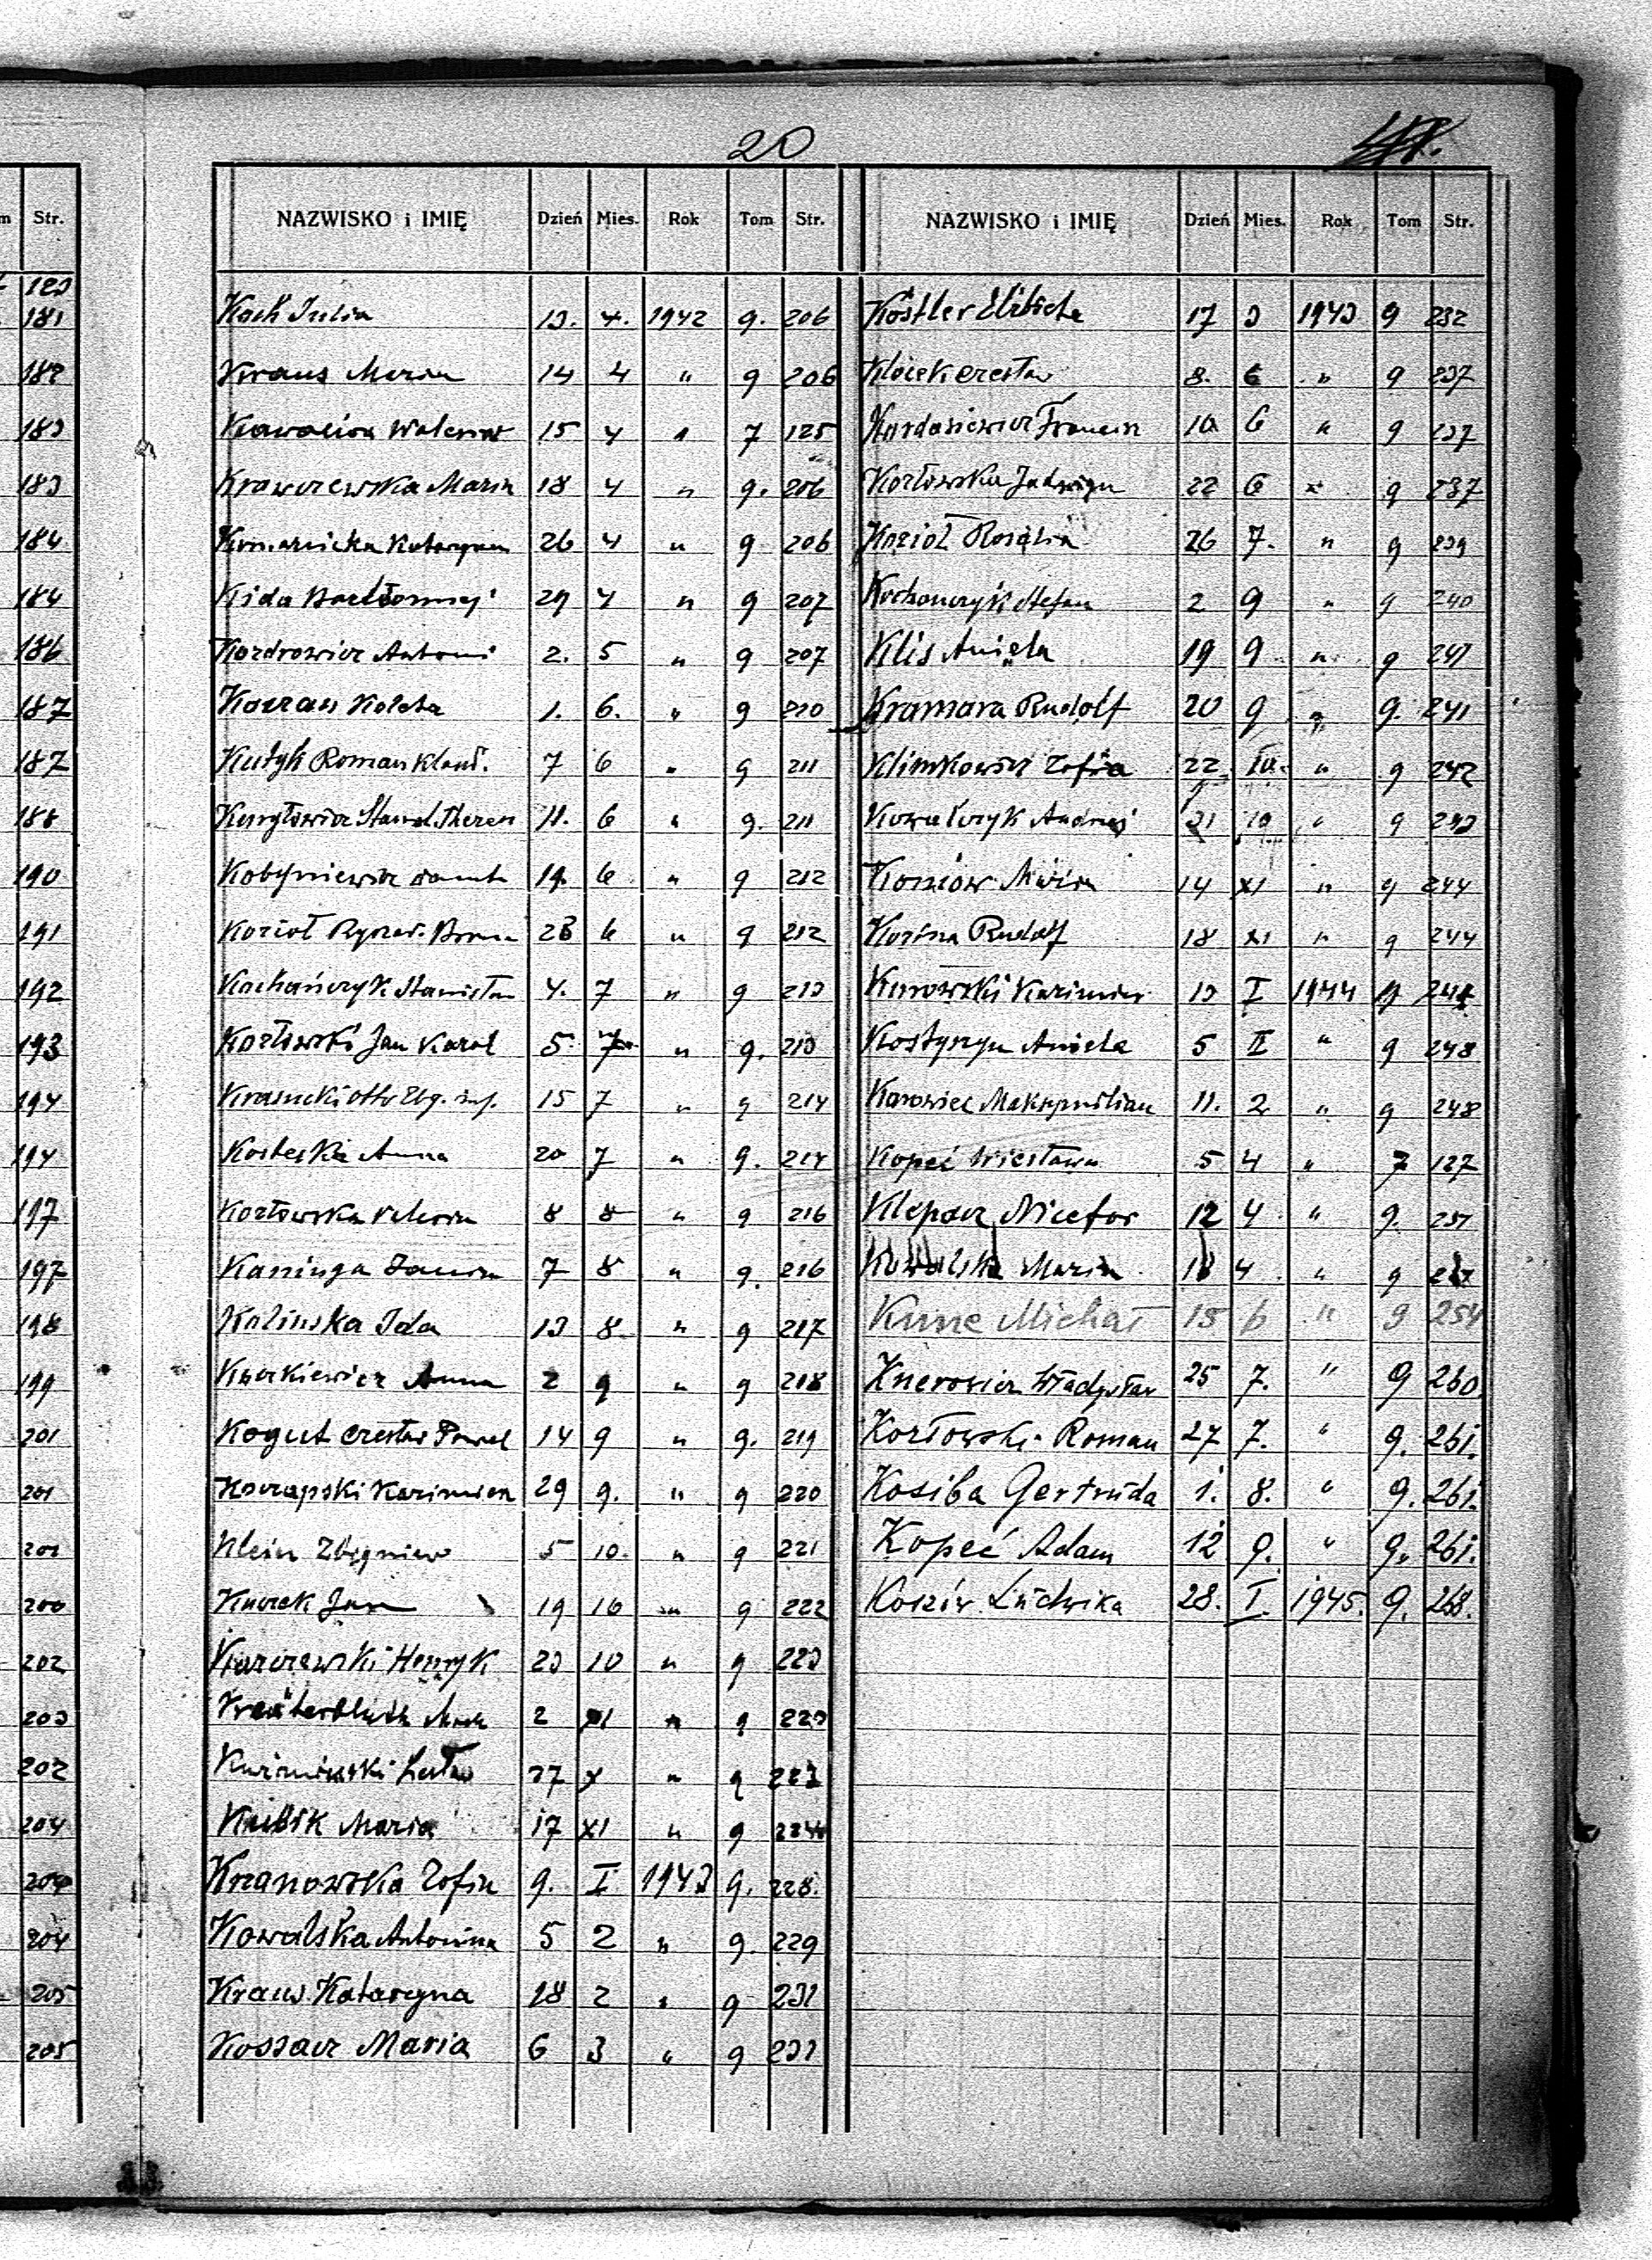 20
m Str.
NAZWISKO i IMIĘ Dzień Mies. Rok Tom Str.
NAZWISKO i IMIĘ Dzień Mies. Rok Tom Str.
123
181
182
183
183
184
184
186
187
187
188
190
191
192
193
194
194
197
197
198
199
201
201
201
200
202
203
202
204
204
204
205
205
Koch Julia 13. 4. 1942 9. 206
Kraus Maria 14 4 " 9 206
15 4 " 7 125
Krawczewska Maria 18 4 " 9. 206
Komarnicka Katarzyna 26 4 " 9 206
Kida Bartłomiej 29 4 " 9 207
Kazdrowicz Antoni 2. 5 " 9 207
1. 6. " 9 210
Kutyk Roman 7 6 " 9 211
11. 6 " 9. 211
19. 6 " 9 212
Kozioł 28 6 " 9 212
Kochańczyk Stanisław 4. 7 " 9 213
Kozłowski Jan Karol 5. 7 " 9. 213
15 7 " 9 214
Kostecka Anna 20 7 " 9. 214
Kozłowska 8 8 " 9 216
Kaninga 7 8 " 9. 216
Kalinska Ida 13 8. " 9 217
Anna 2 9 " 9 218
Kogut Czesław Paweł 14 9 " 9. 219
Kazimierz 29 9. " 9 220
Klein Zbigniew 5 10. " 9 221
Jan 19 10 " 9 222
Karczewski Henryk 23 10 " 9 223
2 XI " 9 223
27 X " 9 223
Kubik Maria 17 XI " 9
Krzanowska Zofia 9. I 1943 9. 228.
Kowalska Antonina 5 2 " 9. 229
Kraus Katarzyna 18 2 " 9 231
Kossacz Maria 6 3 " 9 233
Köstler Elżbieta 17 3 1943 9 232
Klocek Czesław 8. 6 " 9 237
Kardasiewicz 10 6 " 9 237
Kozłowska Jadwiga 22 6 " 9 237
Kozioł Rozalia 26 7. " 9 239
Kochańczyk Stefan 2 9 " 9 240
Klis Aniela 19 9 " 9 241
Kramara Rudolf 20 9 " 9. 241
Klimkowicz Zofia 22. 10. " 9 242
Kowalczyk Andrzej 21 10 " 9 243
Maria 14 XI " 9 244
Kozina Rudolf 18 XI " 9 244
Kurowski Kazimierz 13 I 1944 9
Kostyszyn Aniela 5 II " 9 248
Karowiec Maksymilian 11. 2 " 9 248
Kopeć Wiesława 5 4 " 7 127
Klepacz Nicefor 12 4 " 9. 251
Kowalska Maria 18 4 " 9
Kune Michał 15 6 " 9 254
Knerowicz Władysław 25 7. " 9 260
Kozłowski Roman 27 7. " 9. 261.
Kosiba Gertruda 1. 8. " 9. 261.
Kopeć Adam 12 9. " 9. 261.
Koziw Ludwika 28. I. 1945. 9. 268.